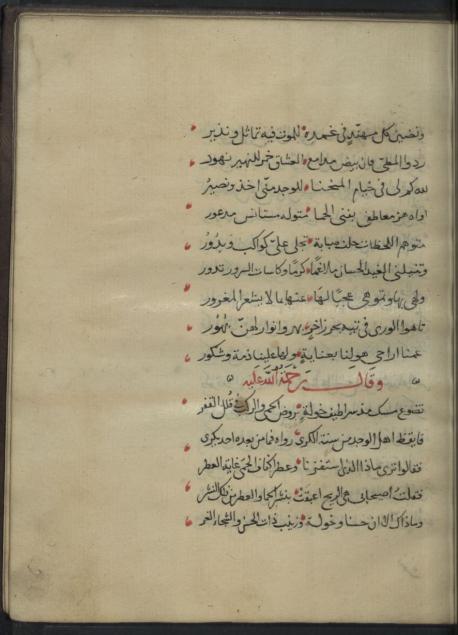 ونضين كل مهند في غمده للموت فيه تماثل ونذير
ردوا المطي فان بيض مدامع العشاق خمر للهجير نهور
لله كم لي في خيام المنحنا للوجد مني اخذ ونصير
اواه من معاطف بفنى الحما متوله مستانس مدعور
متوهم اللحظات خلف صبابة تجلى علي كواكب وبدور
الغيد الحسان ملاغما كرما وكاسات السرور تدور
ولهي بها وتوهي عجبا لها عنها ما لا يشعر المغرور
تاهوا الورى في تيه بحر زاخر بهر وانوار لهن بهور
عمنا اراحي هو لنا بعناية ولها علينا ذمة وشكور
وقال رحمة الله عليه
تضوع مسك من سراطيف خولة بروض الحمى والراكب في قلل القفر
فايقظ اهل الوجد من سنة الكرى رواه فما من بعده احد يكري
فقالوا ترى ماذا الذي ستفزنا وعطر اكناف الحمى غاية العطر
فقلت اصيحابي هي الريح اعبقت بنشر الحما والعطر من ذلك النشر
وما ذاك الا ان حسنا وخولة وزينب ذات الحسن والشجاء الغمر